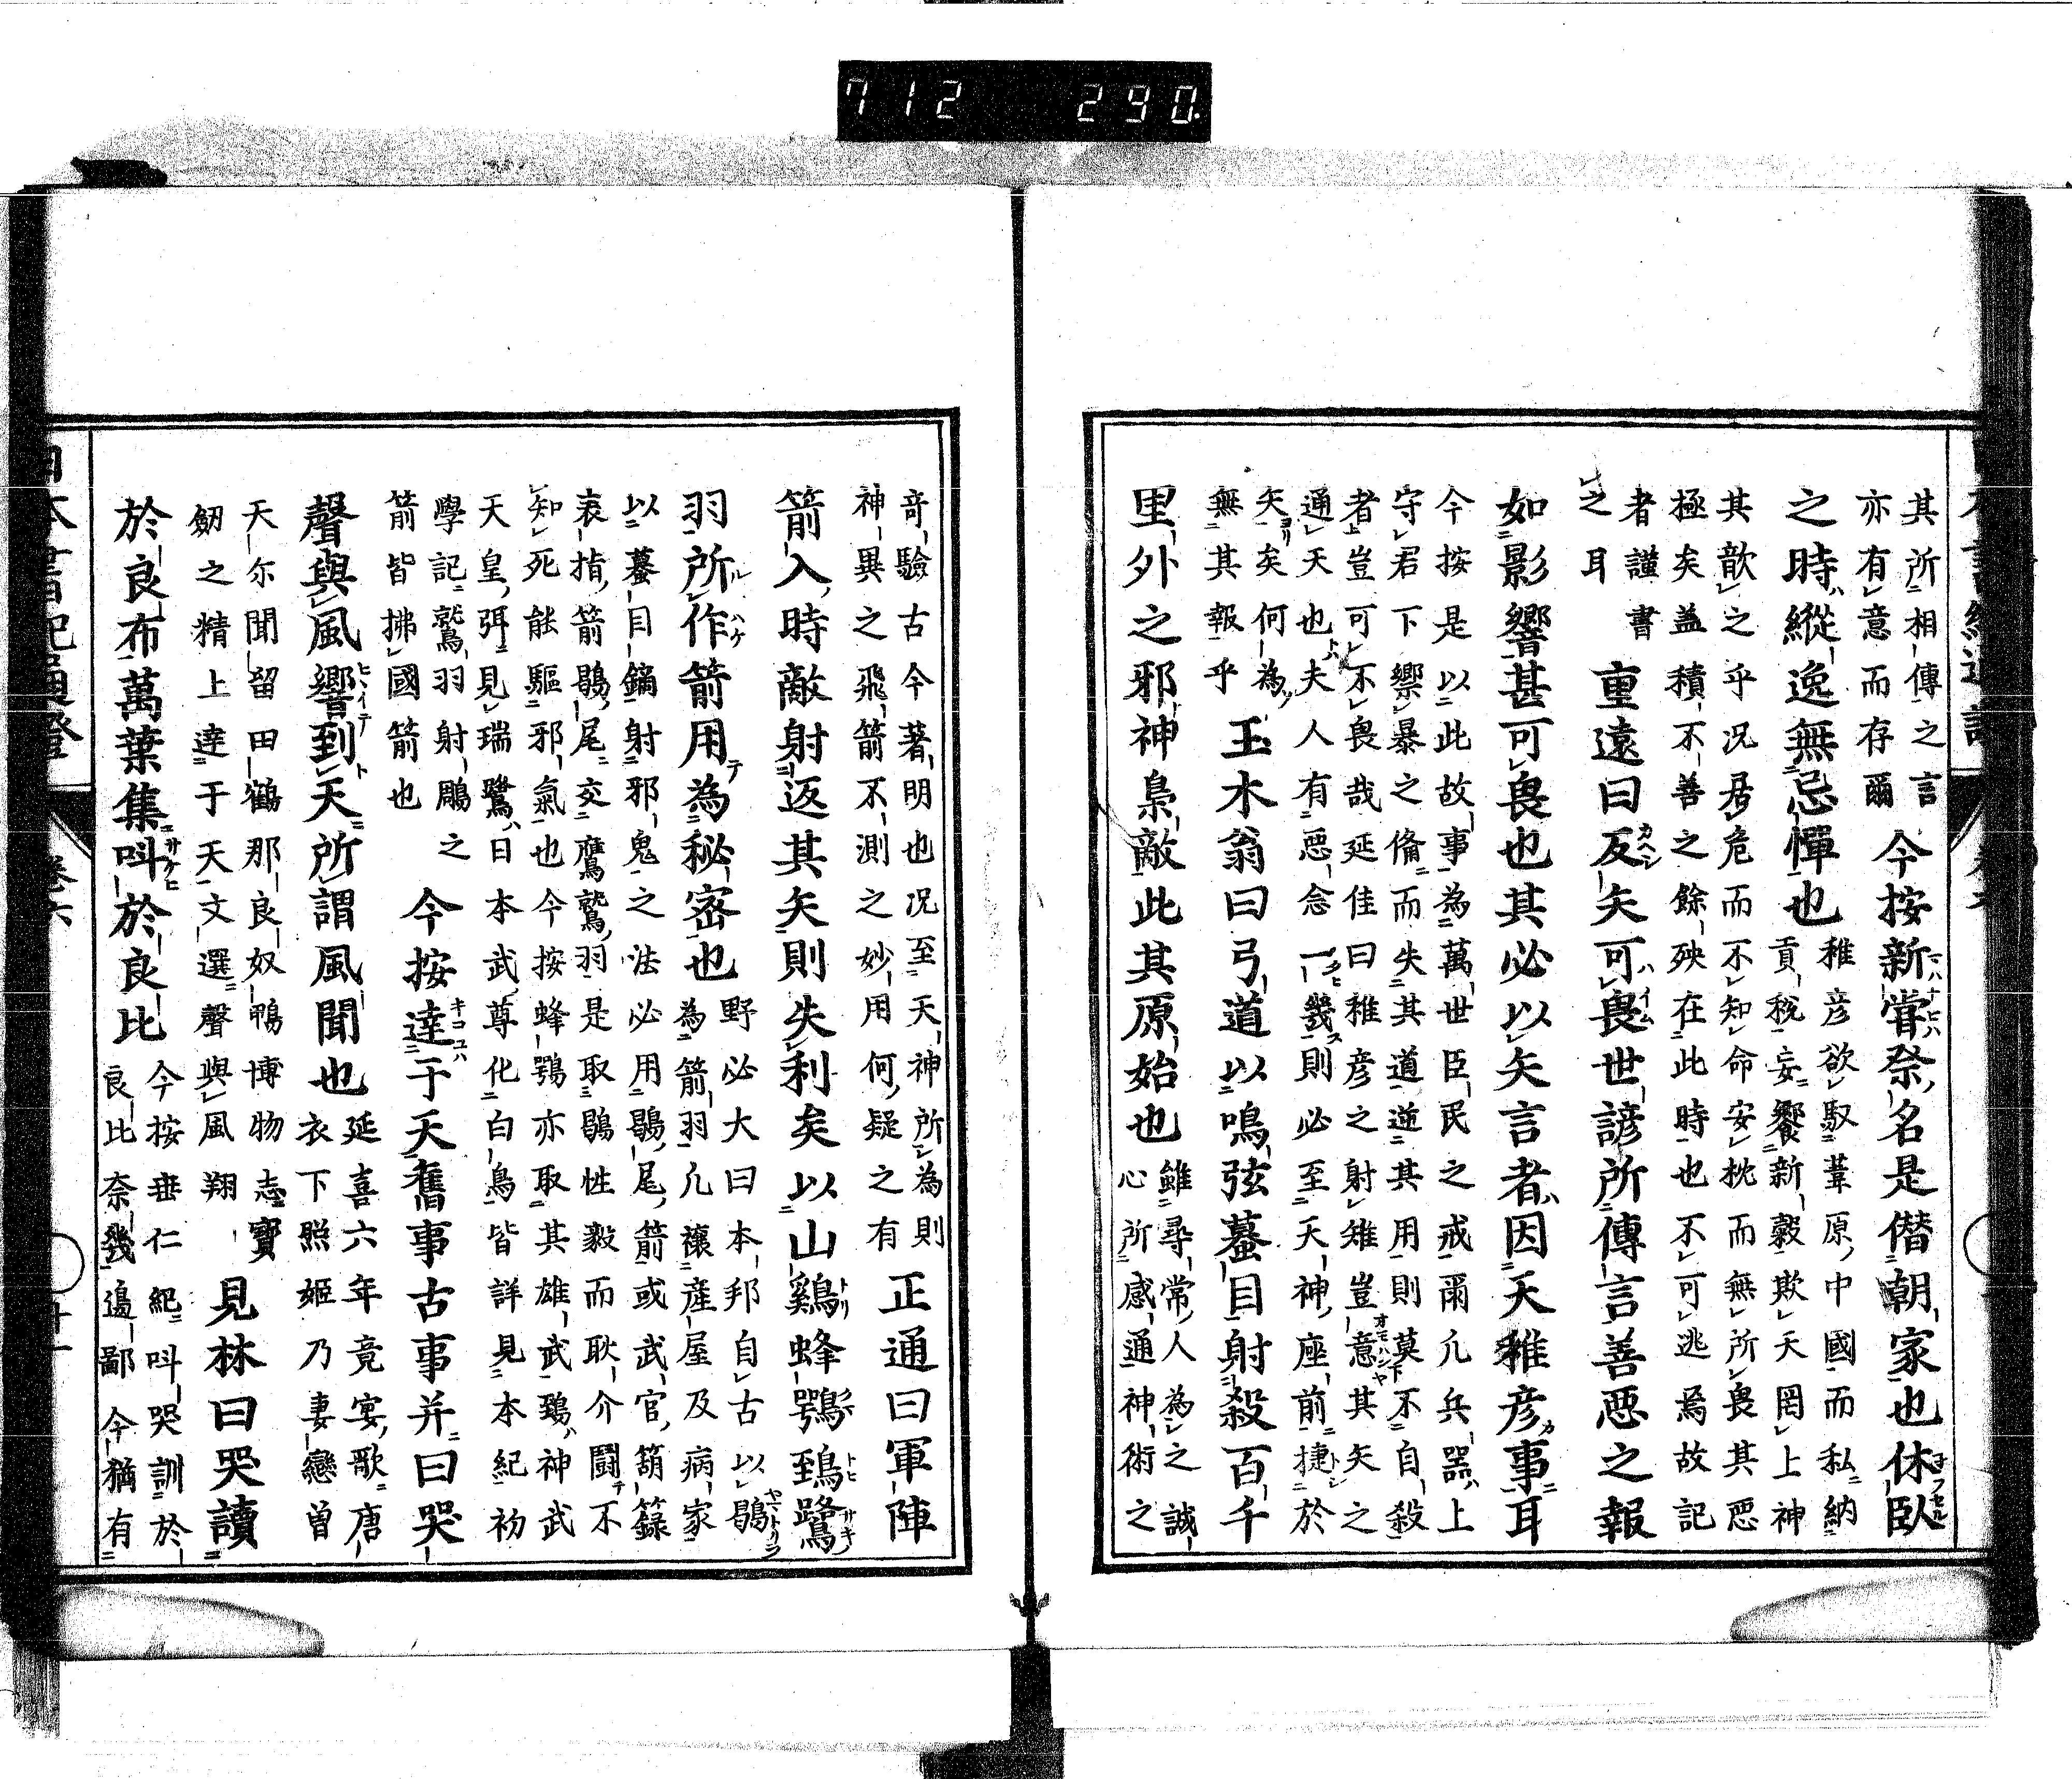 712 290.
其所相傳之言
亦有意而存爾
今按新嘗祭名是僭朝家也休臥
之時縱逸無忌憚也
稚彦欲馭葦原中國而私納
貢稅妄饗新穀欺天罔上神
其歆之乎况居危而不知命安枕而無所畏其惡
極矣盖積不善之餘殃在此時也不可逃焉故記
者謹書
之耳
重遠曰反矢可畏世諺所傳言善惡之報
如影響甚可畏也其必以矢言者因天稚彦事耳
今按是以此故事為萬世臣民之戒爾凡兵器上
守君下禦暴之備而失其道逆其用則莫不自殺
者豈可不畏哉延佳曰稚彦之射雉豈意其矢之
通天也夫人有惡念一幾則必至天神座前捷於
矢矣何為
無其報乎
玉木翁曰弓道以鳴弦蟇目射殺百千
里外之邪神梟敵此其原始也
雖尋常人為之誠
心所感通神術之
奇驗古今著明也况至天神所為則
神異之飛箭不測之妙用何疑之有
正通曰軍陣
箭入時敵射返其矢則失利矣以山鷄蜂鶚鵄鷺
羽所作箭用為秘密也
野必大曰本邦自古以鶡
為箭羽凡禳產屋及病家
以蟇目鏑射邪鬼之法必用鶡尾箭或武官葫籙
表揹箭鶡尾交鷹鷲羽是取鶡性毅而耿介鬪不
知死能驅邪氣也今按蜂鶚亦取其雄武鵄神武
天皇弭見瑞鷺日本武尊化白鳥皆詳見本紀初
學記鷲羽射鵰之
箭皆拂國箭也
今按達于天舊事古事并曰哭
聲與風響到天所謂風聞也
延喜六年竟宴歌唐
衣下照姬乃妻戀曾
天尓聞留田鶴那良奴鴨博物志寶
劒之精上達于天文選聲與風翔
見林曰哭讀
於良布萬葉集叫於良比
今按垂仁紀叫哭訓於
良比奈幾邊鄙今猶有
日本書紀通證
卷六